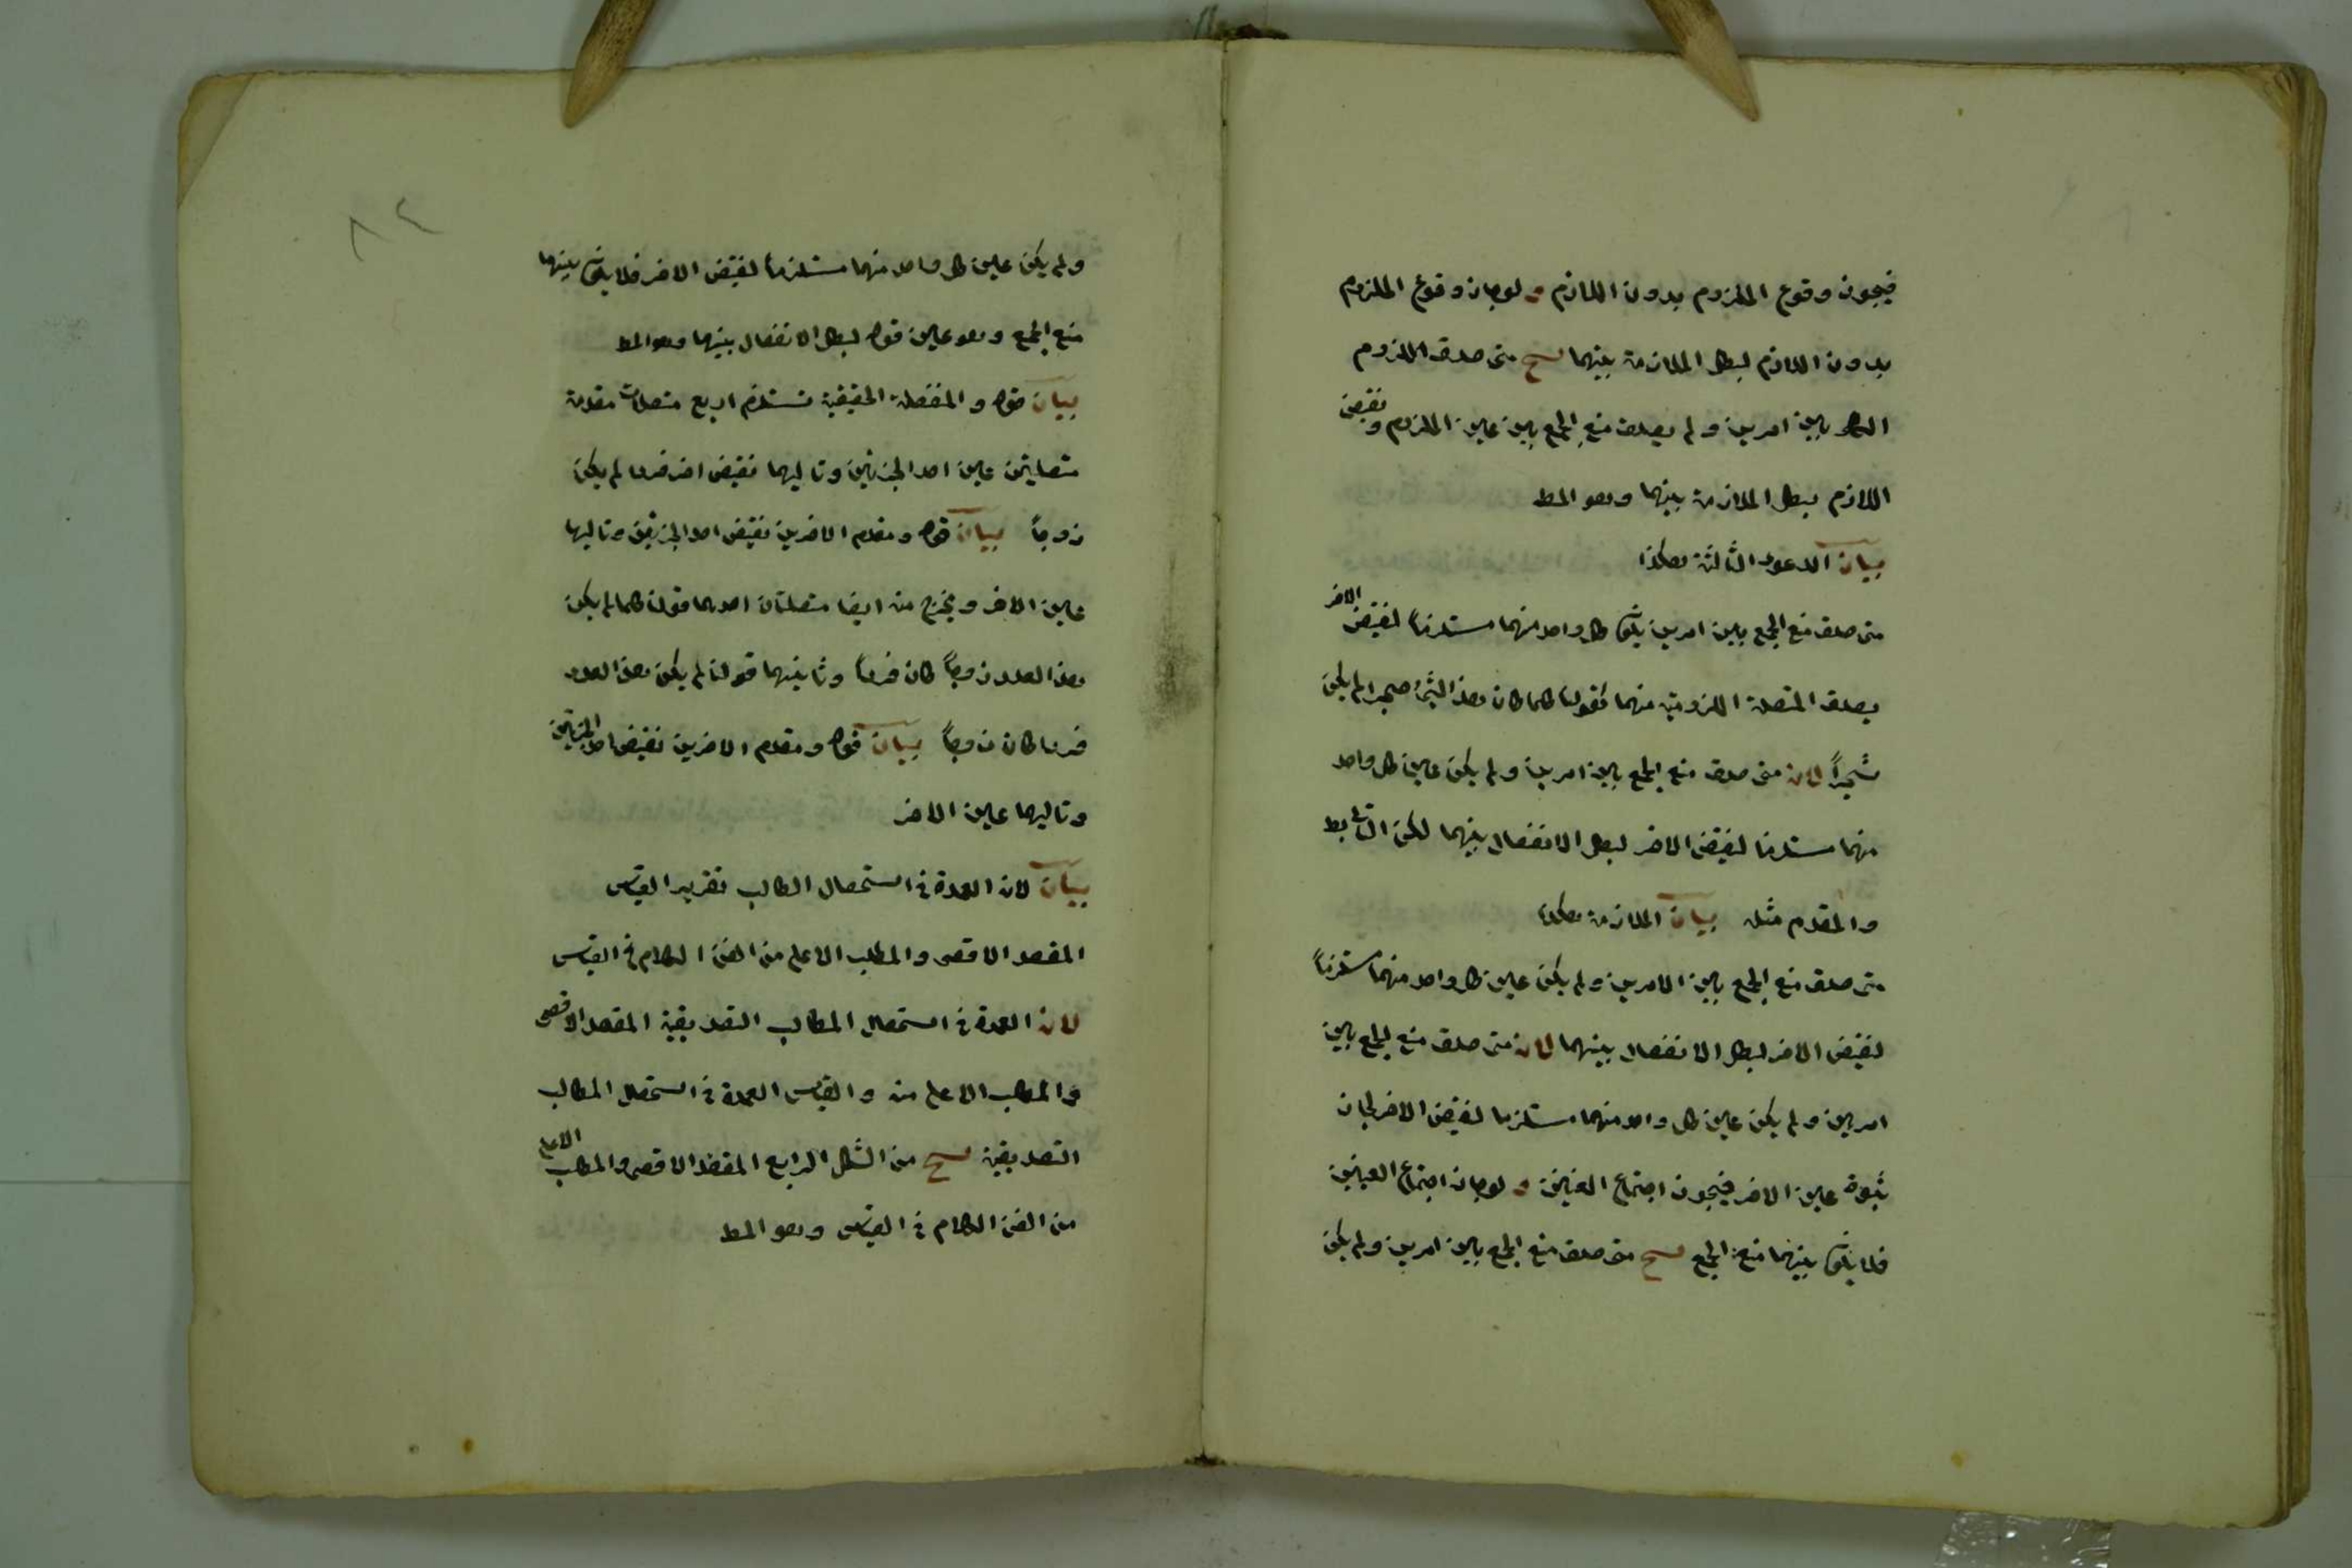 فيجوز وقوع الملزوم بدون اللازم و لو جاز وقوع الملزوم
بدون اللازم لبطل الملازمة بينهما ينتج متى صدق اللزوم
الكلى بين امرين ولم يصدق منع الجمع بين عين الملزوم و نقيض
اللازم لبطل الملازمة بينهما وهو المط
بيان الدعوى الثالثة هكذا
متى صدق منع الجمع بين امرين يكون كل واحد منهما مستلزماً لنقيض الاخر
يصدق المتصلة اللزومية منهما كقولنا كلما كان هذا الشئ حجرا لم يكن
شجراً لان متى صدق منع الجمع بين امرين ولم يكن عين كل واحد
منهما مستلزما لنقيض الاخر لبطل الانفصال بينهما لكن التالى بط
والمقدم مثله بيان الملازمة هكذا
متى صدق منع الجمع بين الامرين ولم يكن عين كل واحد منهما مستلزماً
لنقيض الاخر لبطل الانفصال بينهما لان متى صدق منع الجمع بين
امرين ولم يكن عين كل واحد منهما مستلزما لنقيض الاخر لجاز
ثبوت عين الاخر فيجوز اجتماع العينين و لو جاز اجتماع العينين
فلا يكون بينهما منع الجمع ينتج متى صدق منع الجمع بين امرين ولم يكن
٨٢
ولم يكن عين كل واحد منهما مستلزماً لنقيض الاخر فلا يكون بينهما
منع الجمع وهو عين قوله لبطل الانفصال بينهما وهو المط
بيان قوله والمنفصلة الحقيقية تستلزم اربع متصلات مقدمة
متصلتين عين احد الجزئين وتاليهما نقيض اخر فردا لم يكن
زوجاً بيان قوله ومقدم الاخرين نقيض احد الجزئين وتاليها
عين الاخر ويخرج منه ايضا متصلتان احدهما قولنا كلما لم يكن
هذا العدد زوجاً كان فرداً وثانيهما قولنا لم يكن هذا العدد
فردا كان زوجاً بيان قوله ومقدم الاخرين نقيض احد الجزئين
وتاليهما عين الاخر
بيان لان العمدة فى استحصال المطالب تقرير القياس
المقصد الاقصى والمطلب الاعلى من الفن الكلام فى القياس
لان العمدة فى استحصال المطالب التصديقية المقصد الاقصى
والمطلب الاعلى منه والقياس العمدة فى استحصال المطالب
التصديقية ينتج من الشكل الرابع المقصد الاقصى والمطلب الاعلى
من الفن الكلام فى القياس وهو المط